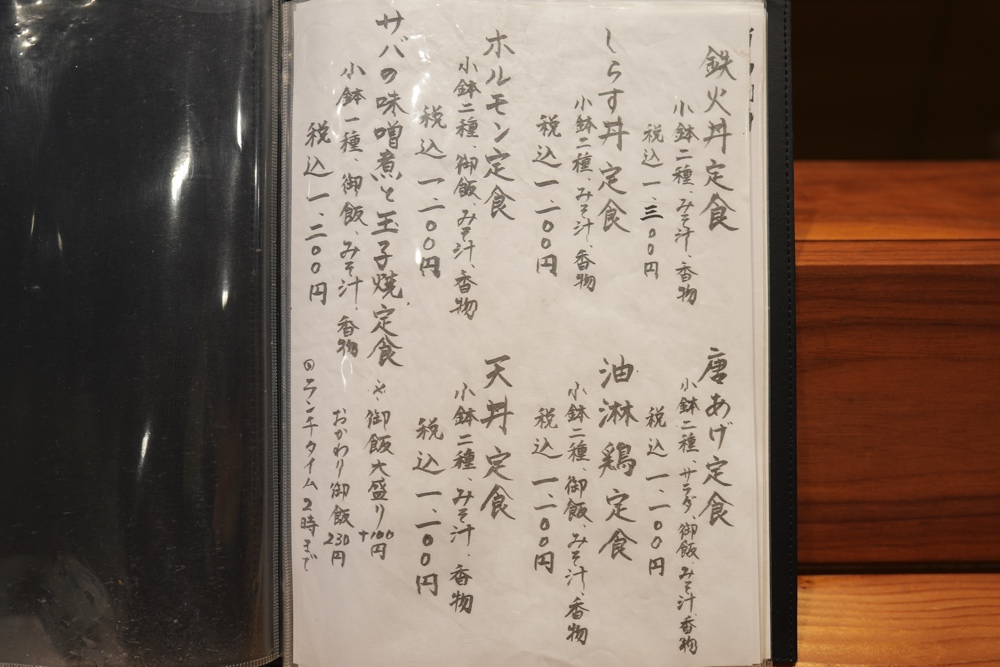 鉄火丼定食
小鉢二種、みそ汁、香物
税込一、三〇〇円
しらす丼定食
小鉢二種、みそ汁、香物
税込一、一〇〇円
ホルモン定食
小鉢二種、御飯、みそ汁、香物
税込一、一〇〇円
サバの味噌煮と玉子焼定食
小鉢一種、御飯、みそ汁、香物
税込一、二〇〇円
唐あげ定食
小鉢二種、サラダ、御飯、みそ汁、香物
税込一、一〇〇円
油淋鶏定食
小鉢二種、御飯、みそ汁、香物
税込一、一〇〇円
天丼定食
小鉢二種、みそ汁、香物
税込一、一〇〇円
御飯大盛り+100円
おかわり御飯230円
ランチタイム2時まで